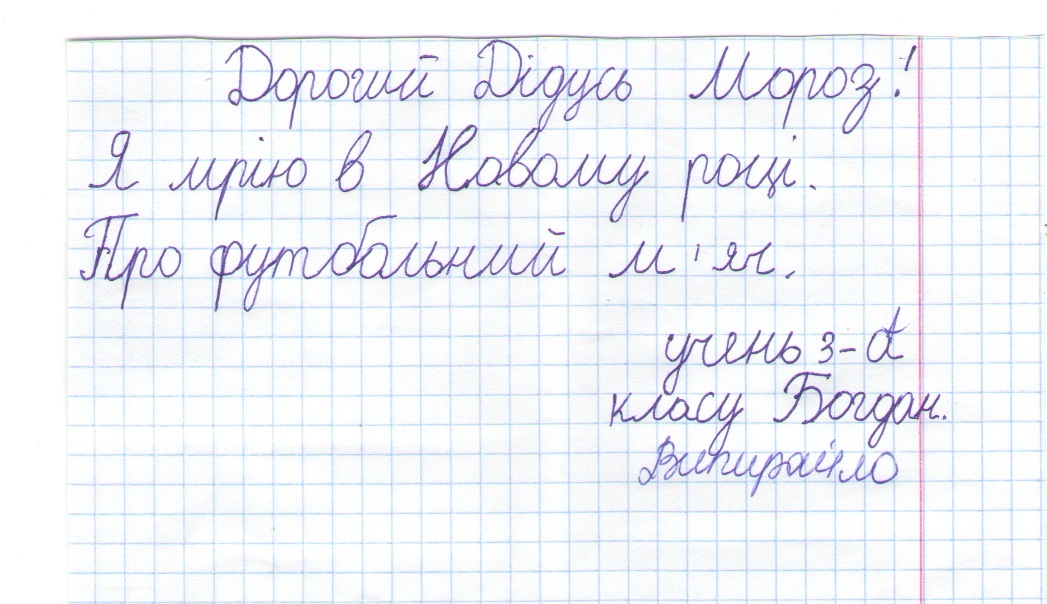 Дорогий Дідусь Мороз!
Я мрію в Новому році.
Про футбольний м'яч.
учень 3-А
класу Богдан.
Випирайло